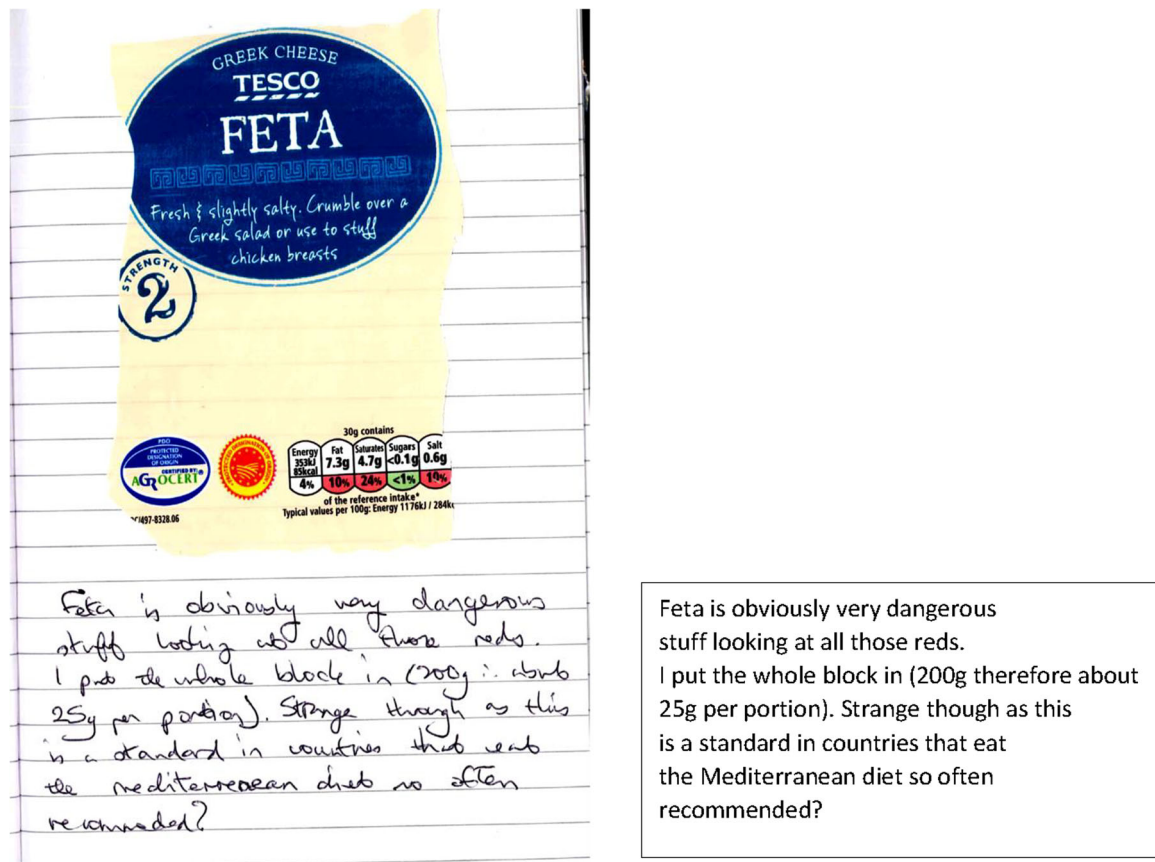 GREEK CHEESE
TESCO
FETA
Fresh & slightly salty. Crumble over a
Greek salad or use to stuff
chicken breasts
STRENGTH
2
PDO
PROTECTED
DESIGNATION
OF ORIGIN
CERTIFIED BY:
AGROCERT
PROTECTED DESIGNATION OF ORIGIN
30g contains
Energy Fat Saturates Sugars Salt
353kJ 85kcal 7.3g 4.7g <0.1g 0.6g
4% 10% 24% <1% 10%
of the reference intake*
Typical values per 100g: Energy 1176kJ / 284k
/497-8328.06
Feta is obviously very dangerous
stuff looking at all those reds.
I put the whole block in (200g ∴ about
25g per portion). Strange through as this
is a standard in countries that eat
the mediterrenean diet so often
recommeded?
Feta is obviously very dangerous
stuff looking at all those reds.
I put the whole block in (200g therefore about
25g per portion). Strange though as this
is a standard in countries that eat
the Mediterranean diet so often
recommended?